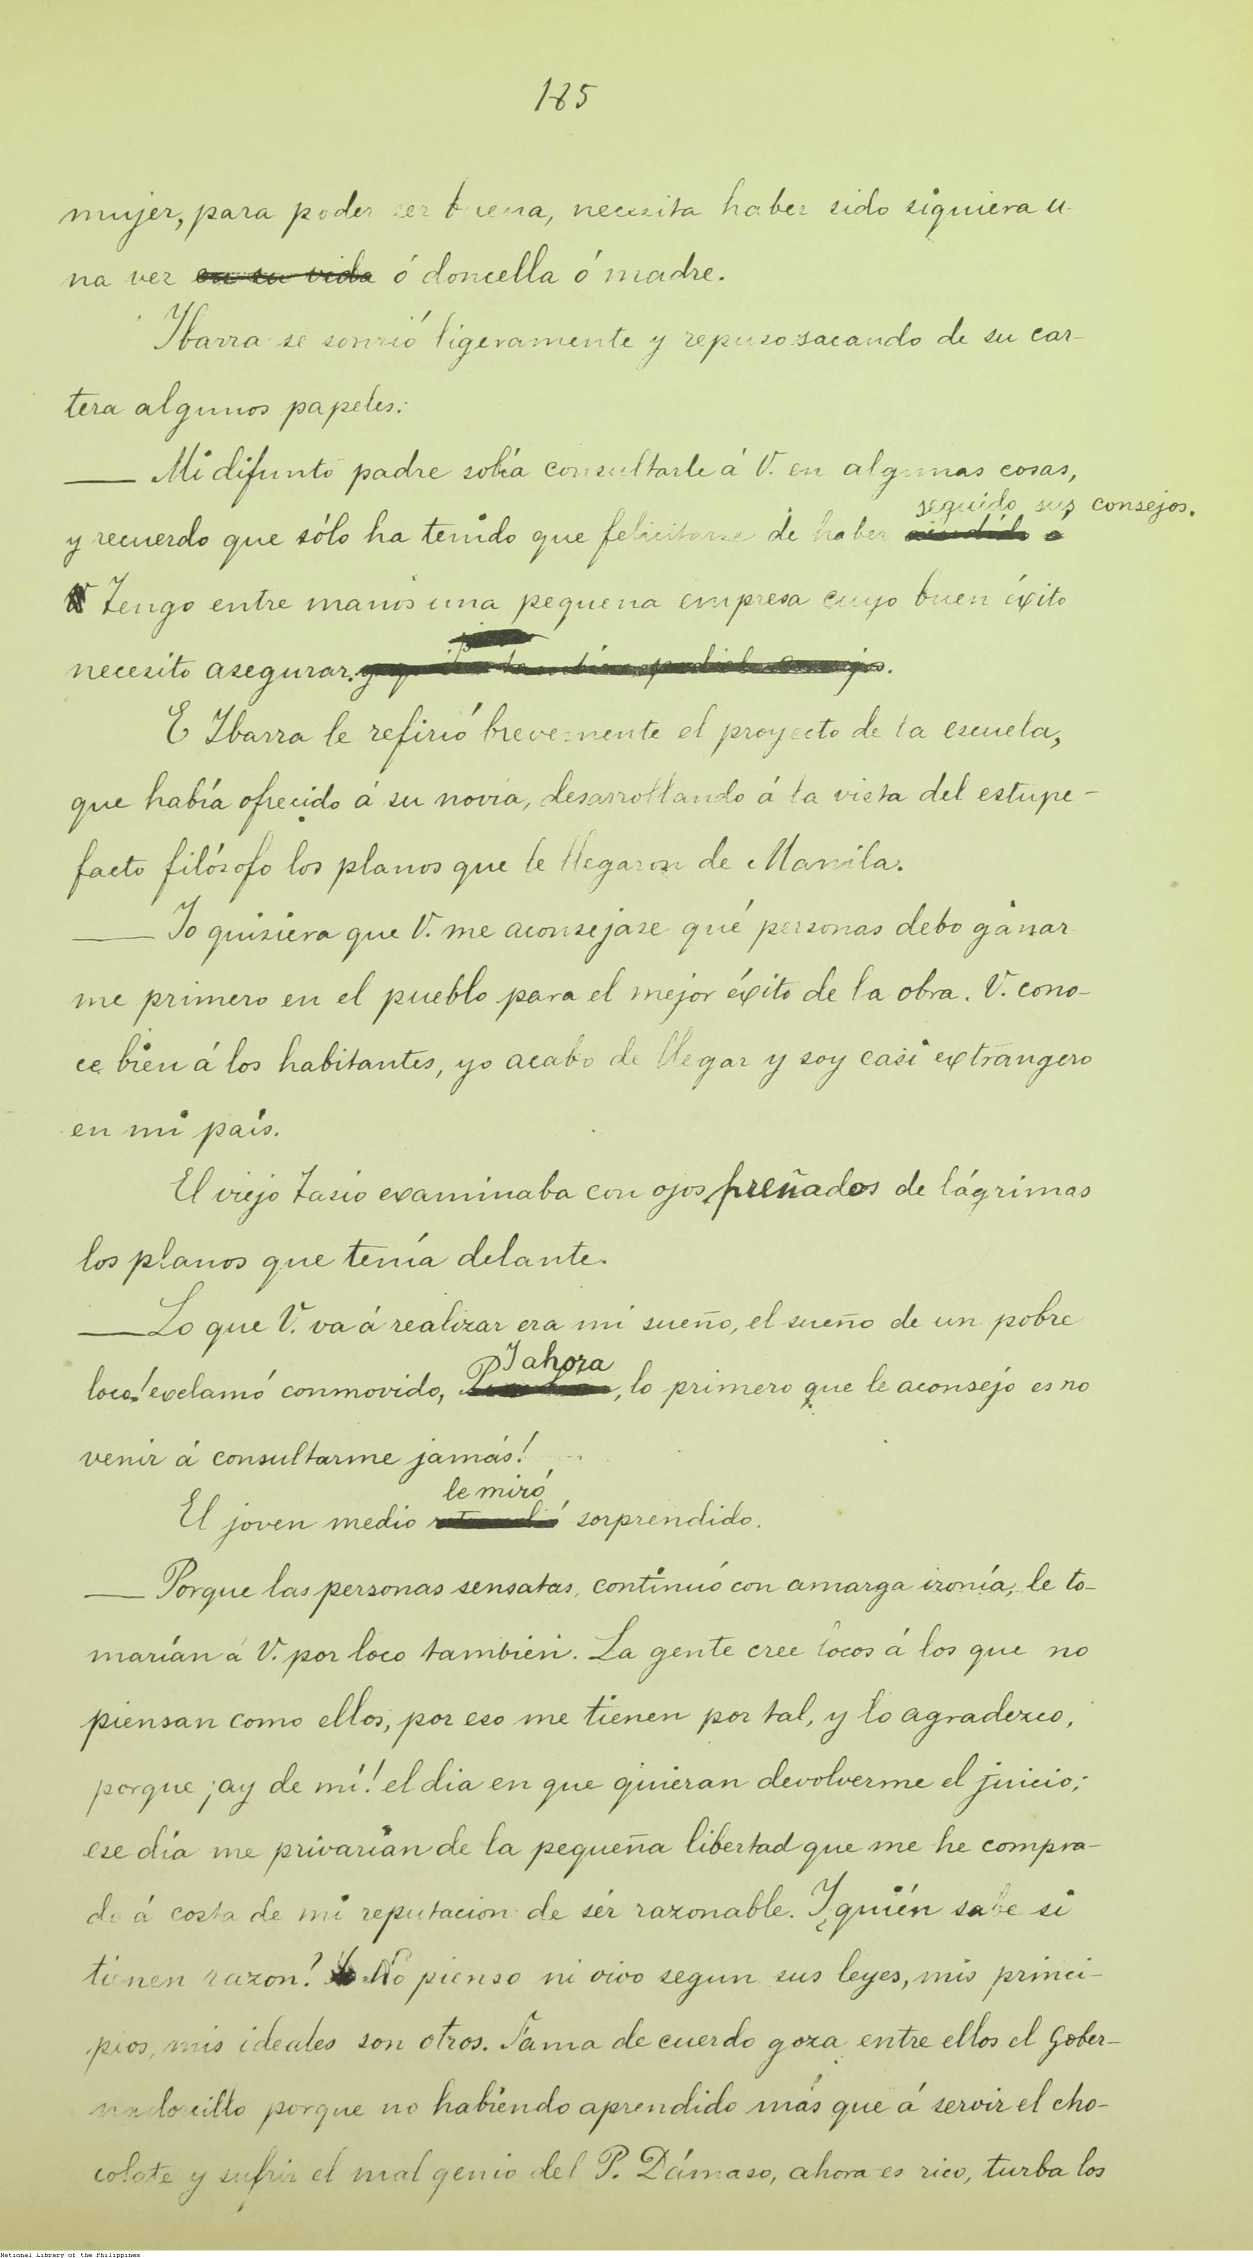 185
mujer, para poder ser buena, necesita haber sido siquiera u-
na vez en su vida ó doncella ó madre.
Ibarra se sonrió ligeramente y repuso sacando de su car-
tera algunos papeles:
— Mi difunto padre solía consultarle á V. en algunas cosas,
seguido sus consejos.
y recuerdo que sólo ha tenido que felicitarse de haber
Tengo entre manos una pequeña empresa cuyo buen éxito
necesito asegurar.
E Ibarra le refirió brevemente el proyecto de la escuela,
que había ofrecido á su novia, desarrollando á la vista del estupe-
facto filósofo los planos que le llegaron de Manila.
— Yo quisiera que V. me aconsejase qué personas debo ganar
me primero en el pueblo para el mejor éxito de la obra. V. cono-
ce bien á los habitantes, yo acabo de llegar y soy casi extrangero
en mi país.
El viejo Tasio examinaba con ojos preñados de lágrimas
los planos que tenía delante.
— Lo que V. va á realizar era mi sueño, el sueño de un pobre
Y ahora
loco! exclamó conmovido, , lo primero que le aconsejo es no
venir á consultarme jamás!
le miró
El joven medio sorprendido.
— Porque las personas sensatas, continuó con amarga ironía, le to-
marían á V. por loco también. La gente cree locos á los que no
piensan como ellos; por eso me tienen por tal, y lo agradezco,
porque ¡ay de mí! el dia en que quieran devolverme el juicio;
ese día me privarían de la pequeña libertad que me he compra-
do á costa de mi reputacion de sér razonable. Y ¿quién sabe si
tienen razon? No pienso ni vivo segun sus leyes, mis princi-
pios, mis ideales son otros. Fama de cuerdo goza entre ellos el gober-
nadorcillo porque no habiendo aprendido más que á servir el cho-
colate y sufrir el mal genio del P. Dámaso, ahora es rico, turba los
National Library of the Philippines